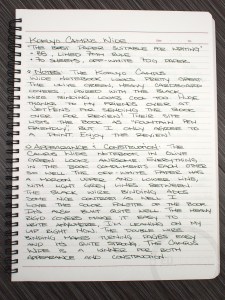 KOKUYO CAMPUS WIDE
"THE BEST PAPER SUITABLE FOR WRITING"
- B5, LINED 7MM RULE
- 70 SHEETS, OFF-WHITE 70G PAPER
NOTES: THE KOKUYO CAMPUS
WIDE NOTEBOOK LOOKS PRETTY GREAT.
THE LIME GREEN, HEAVY CARDBOARD
COVERS, MIXED WITH THE BLACK
WIRE BINDING LOOKS COOL. HUGE
THANKS TO MY FRIENDS OVER AT
JETPENS FOR SENDING THE BOOK
OVER FOR REVIEW! THEIR SITE
LISTS THE BOOK AS "FOUNTAIN PEN
FRIENDLY" BUT I ONLY AGREE TO
A POINT. ENJOY THE REVIEW!
APPEARANCE & CONSTRUCTION: THE
CAMPUS WIDE NOTEBOOK IN LIME
GREEN LOOKS AWESOME. EVERYTHING
IN THE BOOK COMPLIMENTS EACH OTHER
SO WELL. THE OFF-WHITE PAPER HAS
A MAROON UPPER AND LOWER LINE,
WITH LIGHT GREY LINES BETWEEN.
THE BLACK WIRE BINDING ADDS
SOME NICE CONTRAST AS WELL. I
LOVE THE COLOR PALETTE OF THE BOOK.
IT'S ALSO BUILT QUITE WELL. THE HEAVY,
RIGID COVERS MAKE IT EASY TO
WRITE ANYWHERE. I'M LEANING ON MY
LAP RIGHT NOW. THE DOUBLE WIRE
BINDING MAKES TURNING PAGES EASY
AND IT'S QUITE STRONG. THE CAMPUS
WIDE IS A WINNER FOR BOTH
APPEARANCE AND CONSTRUCTION.